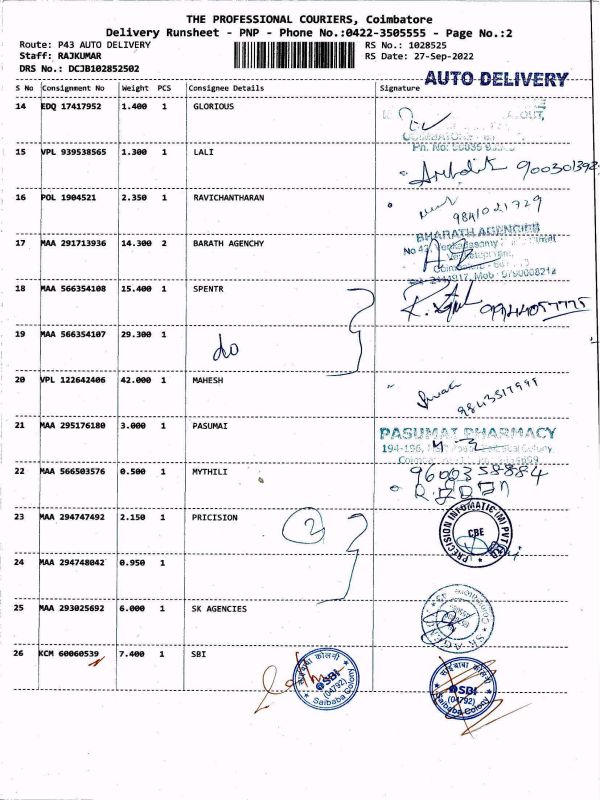 THE PROFESSIONAL COURIERS, Coimbatore
Delivery Runsheet - PNP - Phone No.:0422-3505555 - Page No.:2
Route: P43 AUTO DELIVERY RS No.: 1028525
Staff: RAJKUMAR RS Date: 27-Sep-2022
DRS No.: DCJB102852502
AUTO DELIVERY
S No Consignment No Weight PCS Consignee Details Signature
14 EDQ 17417952 1.400 1 GLORIOUS
15 VPL 939538565 1.300 1 LALI
16 POL 1904521 2.350 1 RAVICHANTHARAN
9841021729
BHARATH AGENCIES
17 MAA 291713936 14.300 2 BARATH AGENCHY
18 MAA 566354108 15.400 1 SPENTR
19 MAA 566354107 29.300 1
do
20 VPL 122642406 42.000 1 MAHESH
21 MAA 295176180 3.000 1 PASUMAI
PASUMAI PHARMACY
22 MAA 566503576 0.500 1 MYTHILI
9600358884
23 MAA 294747492 2.150 1 PRICISION
2
PRECISION INFOMATIC (M) PVT LTD
CBE
24 MAA 294748042 0.950 1
25 MAA 293025692 6.000 1 SK AGENCIES
26 KCM 60060539 7.400 1 SBI
साईबाबा कोलनी
SBI
(04792)
Saibaba Colony
साईबाबा कोलनी
SBI
(04792)
Saibaba Colony